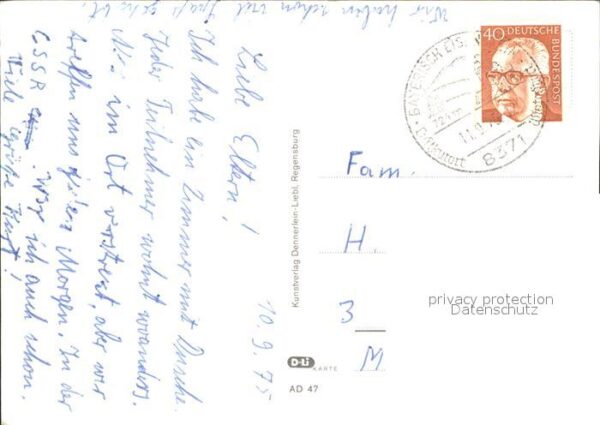 10.9.75
Liebe Eltern!
Ich habe ein Zimmer mit Dusche.
Jeder Teilnehmer wohnt woanders.
im Ort verstreut, aber wir
treffen uns jeden Morgen. In der
CSSR war ich auch schon.
Viele Grüße
Wir haben schon viel Spaß gehabt.
Kunstverlag Dennerlein-Liebl, Regensburg
D-Li KARTE
AD 47
40 DEUTSCHE BUNDESPOST
BAYERISCH EIS
8371
Fam.
H.
3
M
privacy protection
Datenschutz